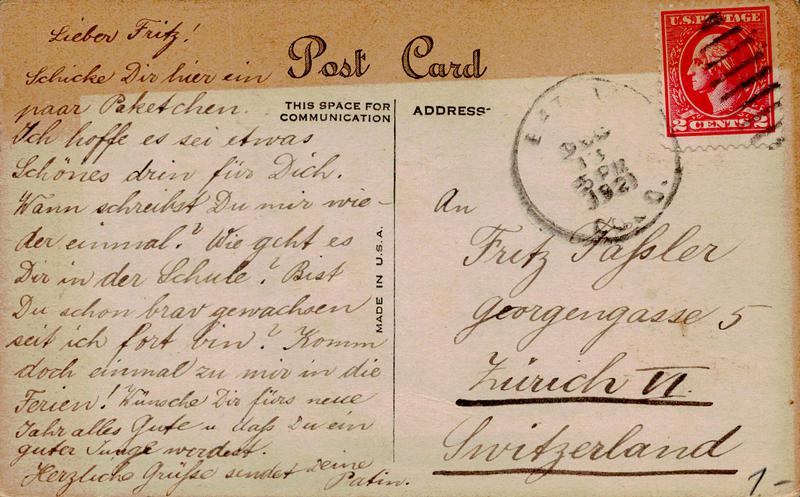 Lieber Fritz!
Schicke Dir hier ein
paar Paketchen.
Ich hoffe es sei etwas
Schönes drin für Dich.
Wann schreibst Du mir wie-
der einmal? Wie geht es
Dir in der Schule? Bist
Du schon brav gewachsen
seit ich fort bin? Komm
doch einmal zu mir in die
Ferien! Wünsche Dir fürs neue
Jahr alles Gute u. daß Du ein
guter Junge werdest.
Herzliche Grüße sendet Deine
Patin.
Post Card
THIS SPACE FOR
COMMUNICATION
ADDRESS
MADE IN U.S.A.
U.S. POSTAGE
2 CENTS 2
DEC
11
5 PM
1921
An
Fritz Faßler
Georgengasse 5
Zürich VI.
Switzerland
1-